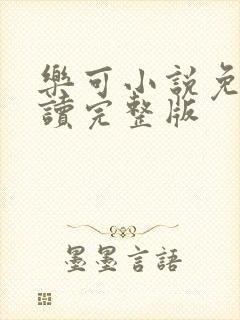 樂可小說免
讀完整版
墨墨言語